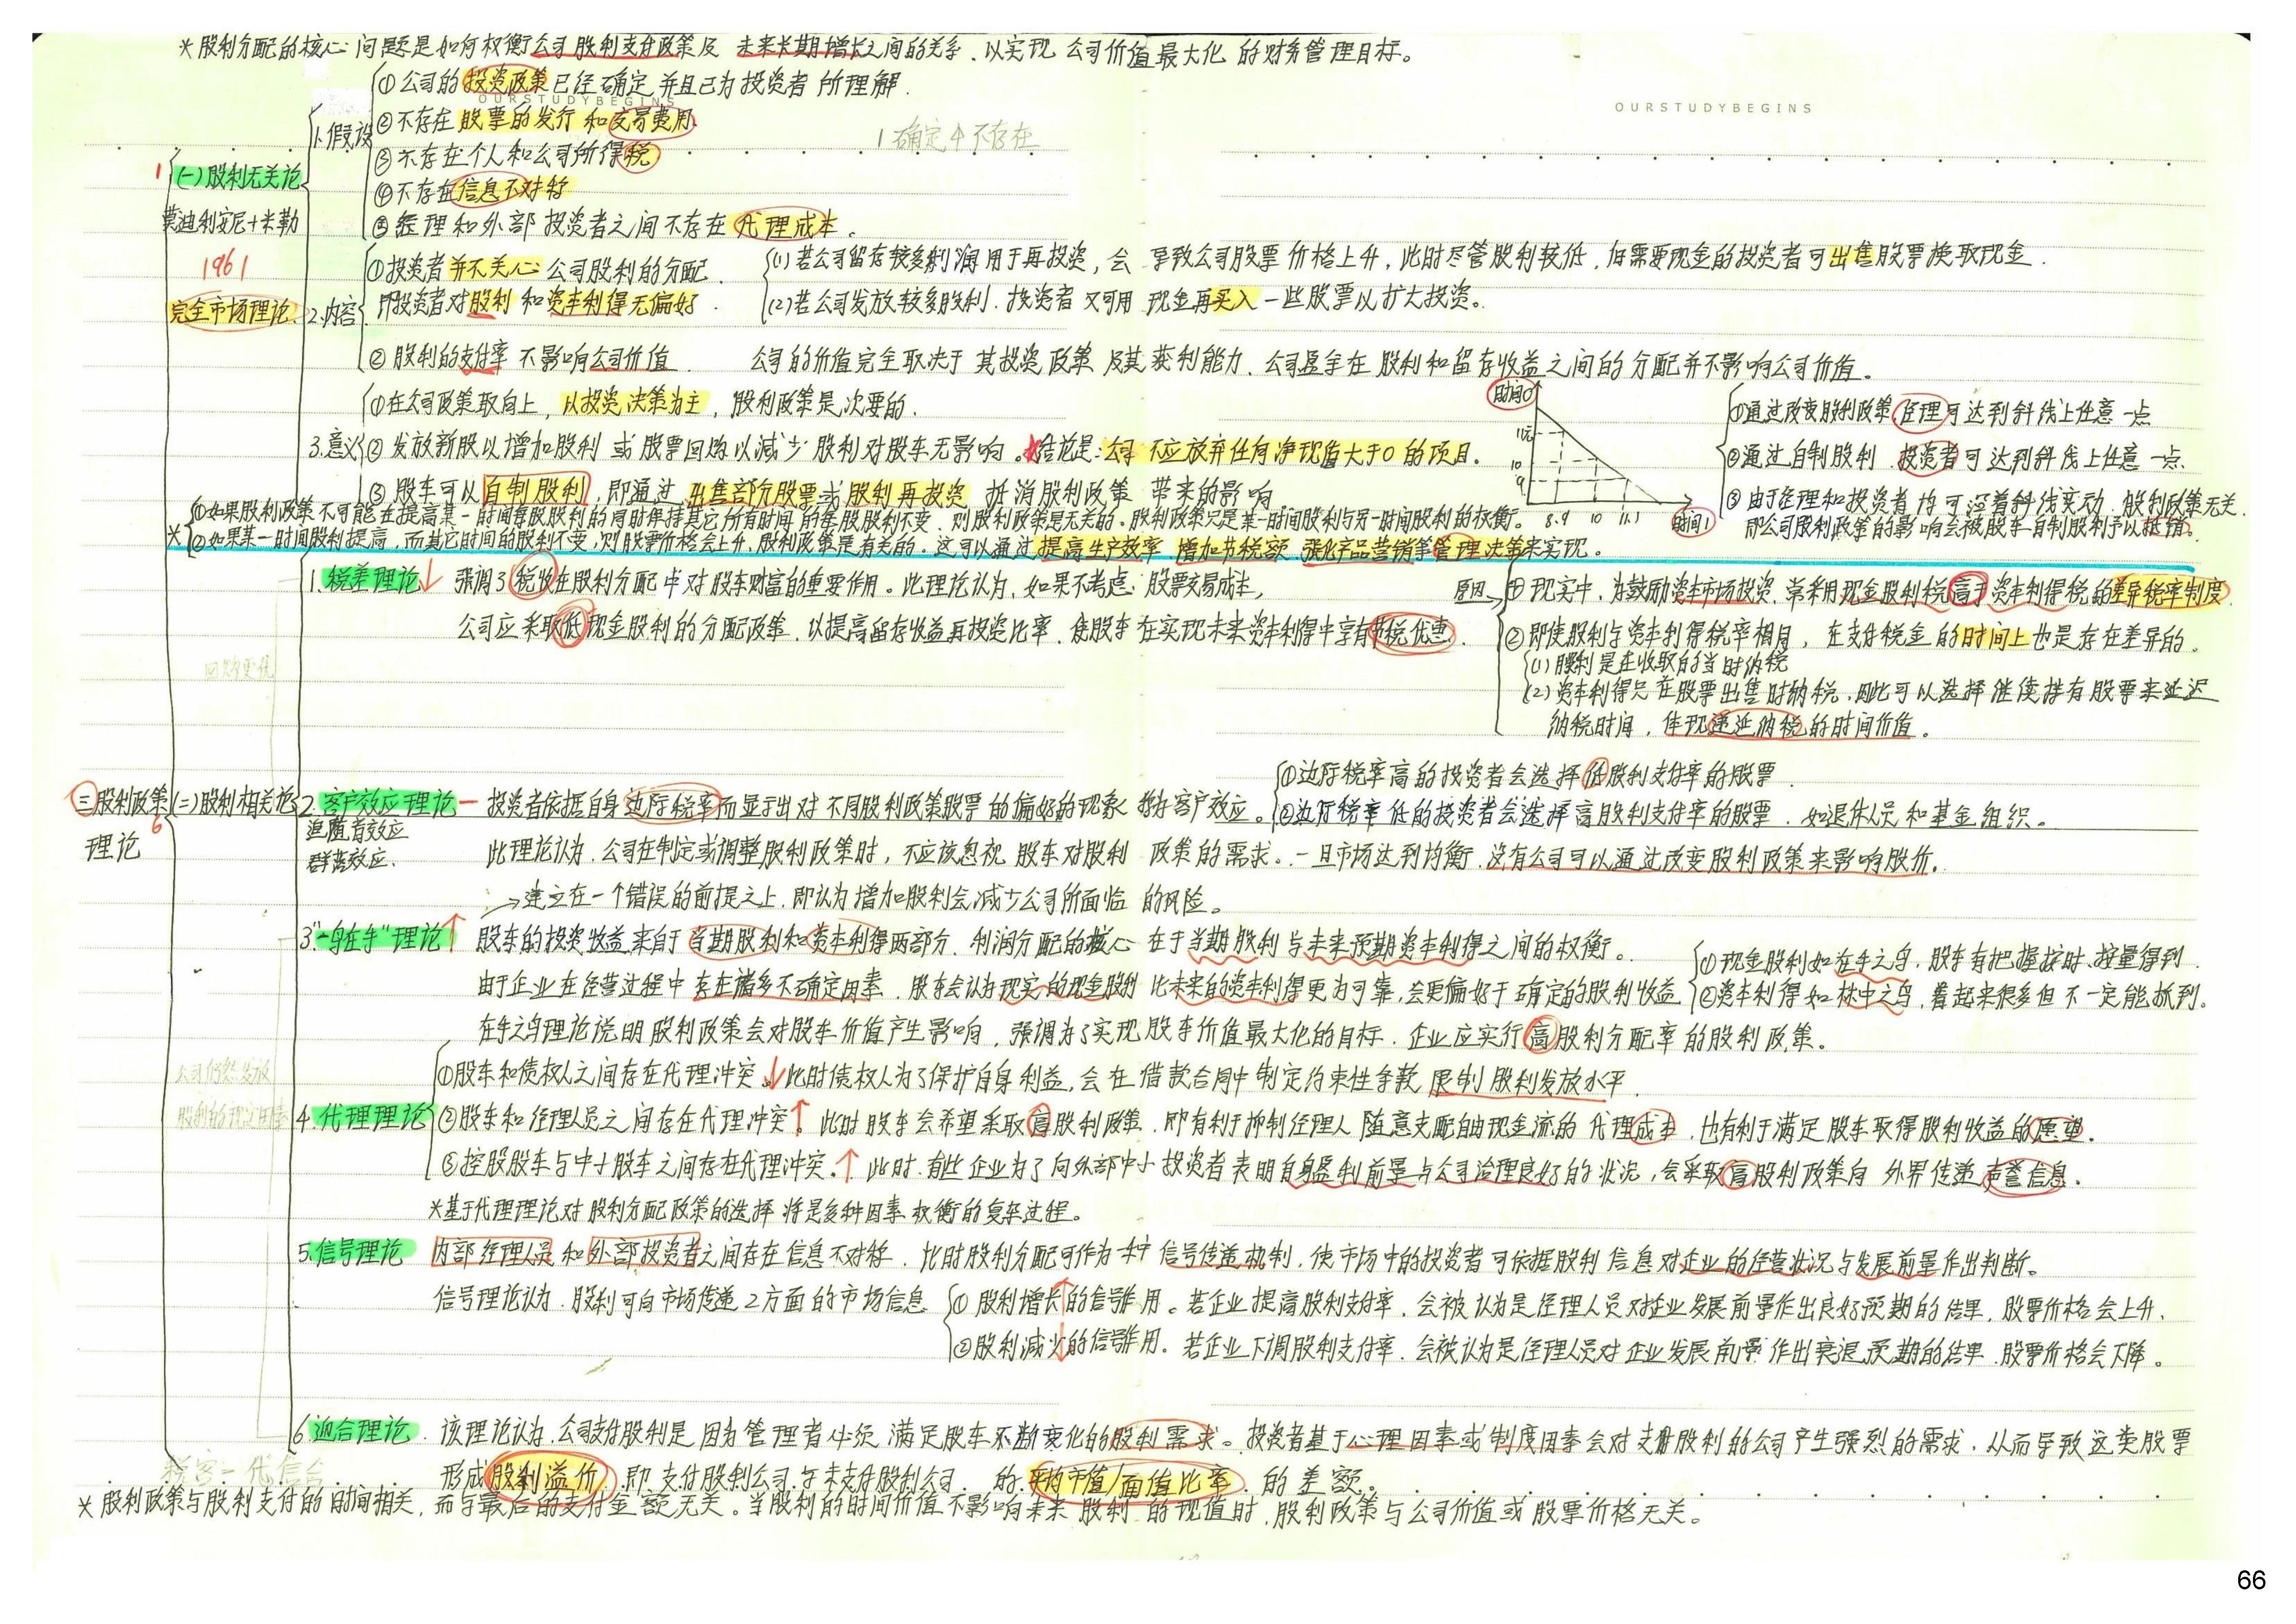 *股利分配的核心问题是如何权衡公司股利支付政策及未来长期增长之间的关系,以实现公司价值最大化的财务管理目标。
①公司的投资政策已经确定并且已为投资者所理解.
OURSTUDYBEGINS
OURSTUDYBEGINS
1.假设
②不存在股票的发行和交易费用
1确定4不存在
③不存在个人和公司所得税
1 (一)股利无关论
④不存在信息不对称
莫迪利安尼+米勒
⑤经理和外部投资者之间不存在代理成本。
1961
完全市场理论
2.内容
①投资者并不关心公司股利的分配.
即投资者对股利和资本利得无偏好.
(1)若公司留存较多利润用于再投资,会导致公司股票价格上升,此时尽管股利较低,但需要现金的投资者可出售股票换取现金.
(2)若公司发放较多股利.投资者又可用现金再买入一些股票以扩大投资。
②股利的支付率不影响公司价值. 公司的价值完全取决于其投资政策及其获利能力.公司盈余在股利和留存收益之间的分配并不影响公司价值。
3.意义
①在公司政策取向上,以投资决策为主,股利政策是次要的.
②发放新股以增加股利或股票回购以减少股利对股东无影响。*结论是:公司不应放弃任何净现值大于0的项目.
③股东可以自制股利,即通过出售部分股票或股利再投资抵消股利政策带来的影响
时间0
11元
10
9
8.9 10 11.1 时间1
①通过改变股利政策,经理可达到斜线上任意一点
②通过自制股利.投资者可达到斜线上任意一点.
③由于经理和投资者均可沿着斜线变动.股利政策无关.
即公司股利政策的影响会被股东自制股利予以抵销。
*①如果股利政策不可能在提高某一时间每股股利的同时保持其它所有时间的每股股利不变,则股利政策是无关的。股利政策只是某一时间股利与另一时间股利的权衡。
②如果某一时间股利提高,而其它时间的股利不变,则股票价格会上升,股利政策是有关的。这可以通过提高生产效率、增加节税额、强化产品营销等管理决策来实现。
1.税差理论↓ 强调了税收在股利分配中对股东财富的重要作用。此理论认为,如果不考虑股票交易成本,
公司应采取低现金股利的分配政策,以提高留存收益再投资比率,使股东在实现未来资本利得中享有节税优惠.
原因→①现实中,为鼓励资本市场投资,常采用现金股利税高于资本利得税的差异税率制度.
②即使股利与资本利得税率相同,在支付税金的时间上也是存在差异的。
(1)股利是在收取的当时纳税
(2)资本利得只在股票出售时纳税,因此可以选择继续持有股票来延迟
纳税时间,体现递延纳税的时间价值。
三股利政策
理论
6
(二)股利相关论
2.客户效应理论— 投资者依据自身边际税率而显示出对不同股利政策股票的偏好的现象称为客户效应。
追随者效应
群落效应.
①边际税率高的投资者会选择低股利支付率的股票
②边际税率低的投资者会选择高股利支付率的股票.如退休人员和基金组织。
此理论认为.公司在制定或调整股利政策时,不应该忽视股东对股利政策的需求。一旦市场达到均衡,没有公司可以通过改变股利政策来影响股价.
→建立在一个错误的前提之上,即认为增加股利会减少公司所面临的风险。
3."一鸟在手"理论↑ 股东的投资收益来自于当期股利和资本利得两部分.利润分配的核心在于当期股利与未来预期资本利得之间的权衡。
由于企业在经营过程中存在诸多不确定因素.股东会认为现实的现金股利比未来的资本利得更为可靠,会更偏好于确定的股利收益
①现金股利如在手之鸟,股东有把握按时、按量得到.
②资本利得如林中之鸟,看起来很多但不一定能抓到。
在手之鸟理论说明股利政策会对股东价值产生影响,强调为了实现股东价值最大化的目标.企业应实行高股利分配率的股利政策。
公司仍然发放
4.代理理论
①股东和债权人之间存在代理冲突↓.此时债权人为了保护自身利益,会在借款合同中制定约束性条款限制股利发放水平.
②股东和经理人员之间存在代理冲突↑.此时股东会希望采取高股利政策.即有利于抑制经理人随意支配自由现金流的代理成本,也有利于满足股东取得股利收益的愿望.
③控股股东与中小股东之间存在代理冲突.↑ 此时.有些企业为了向外部中小投资者表明自身盈利前景与公司治理良好的状况,会采取高股利政策向外界传递声誉信息.
*基于代理理论对股利分配政策的选择将是多种因素权衡的复杂过程。
5.信号理论 内部经理人员和外部投资者之间存在信息不对称.此时股利分配可作为一种信号传递机制,使市场中的投资者可依据股利信息对企业的经营状况与发展前景作出判断。
信号理论认为.股利可向市场传递2方面的市场信息
①股利增长↑的信号作用。若企业提高股利支付率.会被认为是经理人员对企业发展前景作出良好预期的结果,股票价格会上升.
②股利减少↓的信号作用。若企业下调股利支付率.会被认为是经理人员对企业发展前景作出衰退预期的结果.股票价格会下降。
6.迎合理论. 该理论认为.公司支付股利是因为管理者必须满足股东不断变化的股利需求。投资者基于心理因素或制度因素会对支付股利的公司产生强烈的需求.从而导致这类股票
形成股利溢价,即支付股利公司与未支付股利公司的平均市值/面值比率的差额。
税客一代信合
*股利政策与股利支付的时间相关,而与最后的支付金额无关。当股利的时间价值不影响未来股利的现值时,股利政策与公司价值或股票价格无关。
66